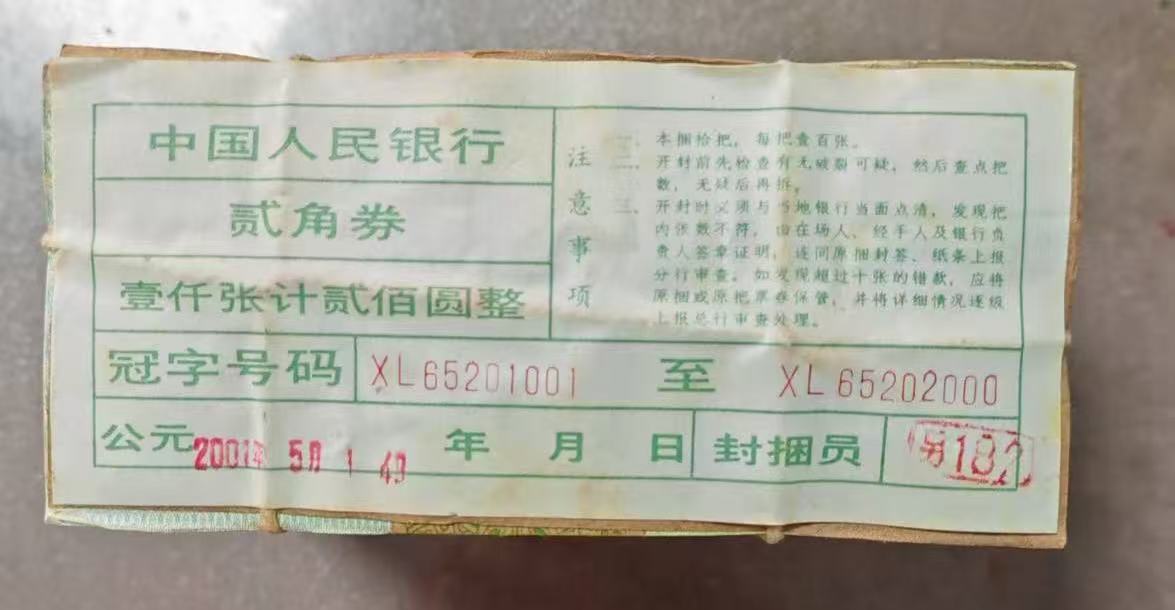 中国人民银行
贰角券
壹仟张计贰佰圆整
注意事项
一、本捆拾把，每把壹百张。
二、开封前先检查有无破裂可疑，然后查点把
数，无疑后再拆。
三、开封时必须与当地银行当面点清，发现把
内张数不符，由在场人、经手人及银行负
责人签章证明，连同原捆封签、纸条上报
分行审查。如发现超过十张的错款，应将
原捆或原把票券保管，并将详细情况逐级
上报总行审查处理。
冠字号码 XL65201001 至 XL65202000
公元 2001年 5月 1 年 月 日 封捆员 182